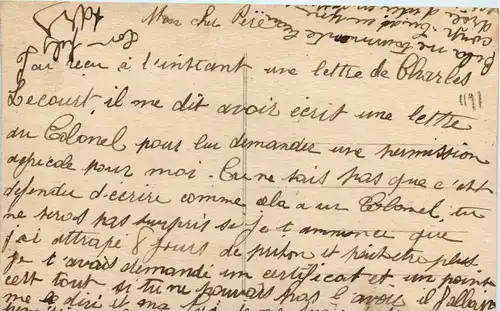 Mon cher Père
J'ai reçu à l'instant une lettre de Charles
Lecourt, il me dit avoir écrit une lettre
1191
au Colonel pour lui demander une permission
agricole pour moi. Tu ne sais pas que c'est
défendu d'écrire comme cela a un Colonel, tu
ne seras pas surpris si je t'annonce que
j'ai attrapé 8 jours de prison et peut être plus
Je t'avais demandé un certificat et un point
c'est tout si tu ne pouvais pas l'avoir il fallait
me le dire et ma